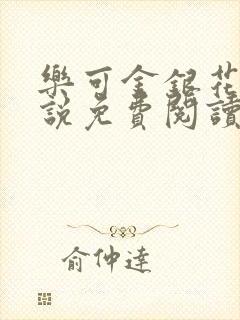 樂可金銀花
說免費閱讀
俞仲達